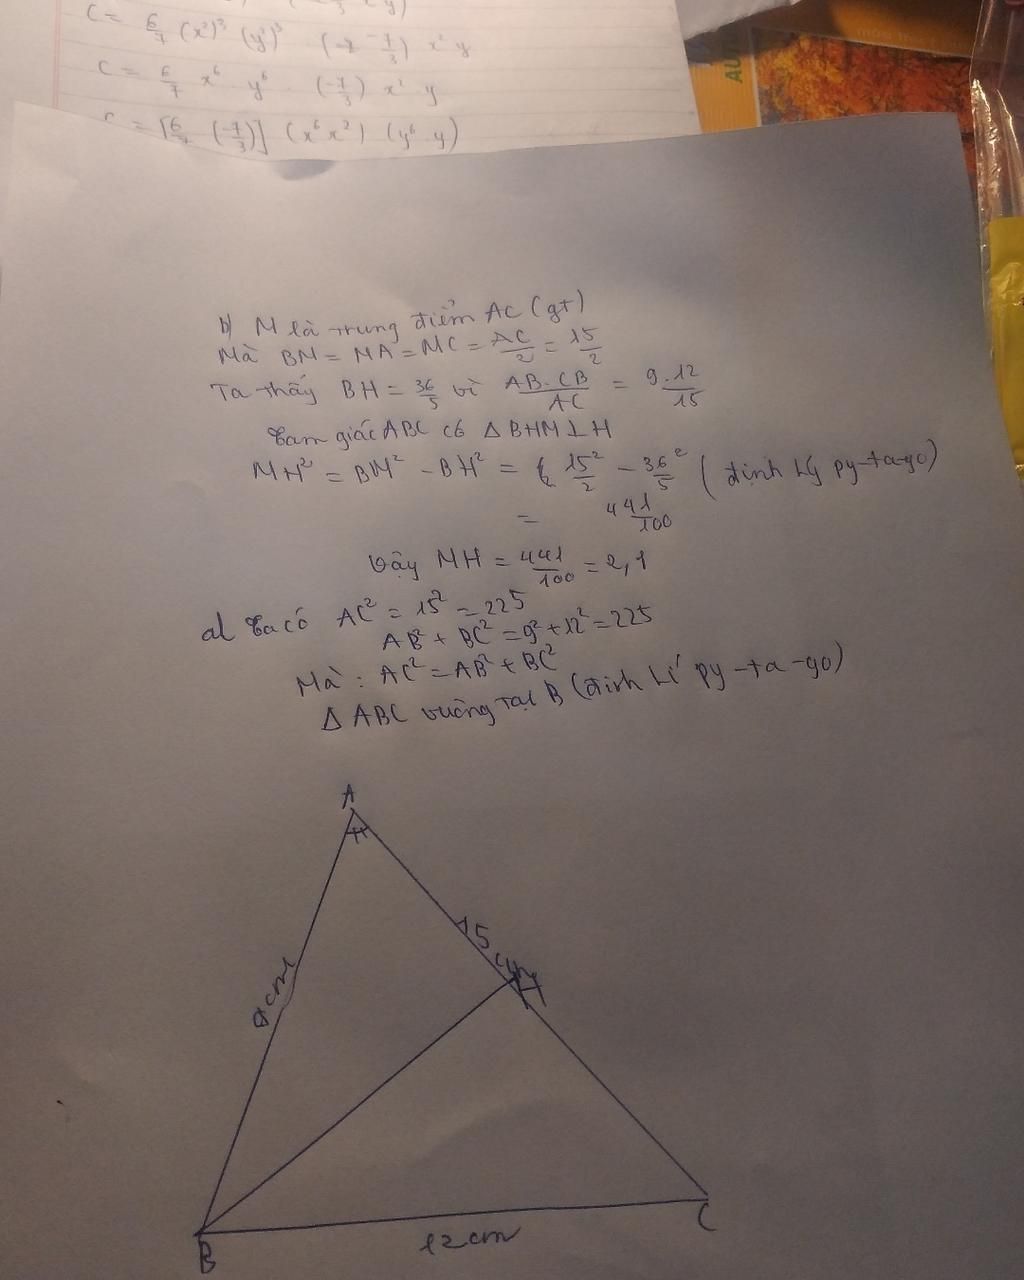 C = 6/7 (x²)³ (y²)³ (-7/3) x² y
C = 6/7 x⁶ y⁶ (-7/3) x² y
= [6/7 (-7/3)] (x⁶ x²) (y⁶ y)
AU
b) M là trung điểm AC (gt)
Mà BM = MA = MC = AC/2 = 15/2
Ta thấy BH = 36/5 vì AB.CB/AC = 9.12/15
Tam giác ABC có Δ BHM ⊥ H
MH² = BM² - BH² = 15²/2 - 36²/5 (định lý py-ta-go)
= 441/100
Vậy MH = 441/100 = 2,1
a) Ta có AC² = 15² = 225
AB² + BC² = 9² + 12² = 225
Mà : AC² = AB² + BC²
Δ ABC vuông tại B (định lí py-ta-go)
A
15 cm
9cm
B
12cm
C